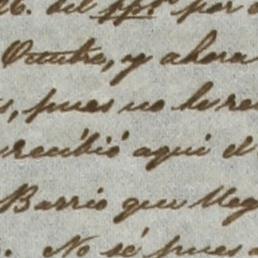 del ppdo por
Octubre, y ahora
pues no lo re
recibió aqui el
Barrio que lleg
No sé pues